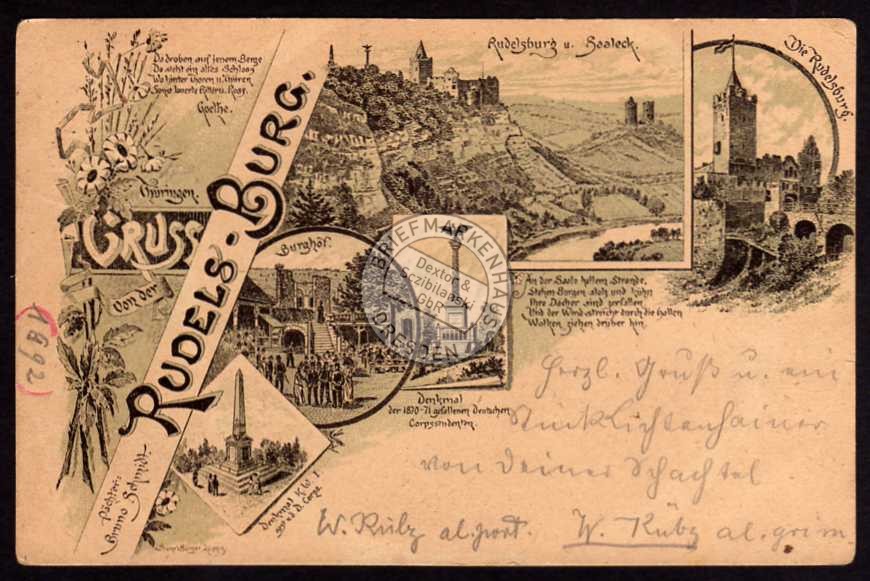 Da droben auf jenem Berge
Da steht ein altes Schloss
Wo hinter Thoren u. Thüren
Sonst lauerte Ritter u. Ross.
Goethe.
Thüringen.
GRUSS
Von der
RUDELS-BURG.
Pächter:
Bruno Schmidt.
Rudelsburg u. Saaleck.
Die Rudelsburg.
Burghof.
BRIEFMARKENHAUS
Dextor &
Sczibilanski
GbR
DRESDEN
An der Saale hellem Strande,
Stehen Burgen stolz und kühn
Ihre Dächer sind zerfallen,
Und der Wind streicht durch die hallen
Wolken ziehen drüber hin.
Denkmal
der 1870-71 gefallenen deutschen
Corpsstudenten.
Denkmal K.W. I
v. d. D. Corps.
(1892)
Herzl. Gruß u. ein
Stück Lichtenhainer
von Deiner Schachtel
W. Kübz al. W. Kübz al.